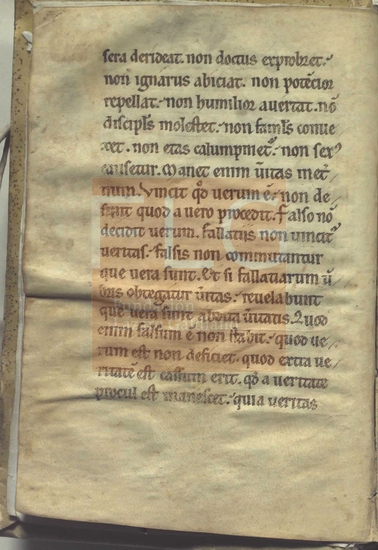 sera derideat. non doctus exprobret.
non ignarus abiciat. non potẽtior
repellat. non humilior auertat. nõ
discipl̃s molestet. non famul̃s conue
xet. non etas calumpniet᷑. non sexꝰ
causetur. Manet enim ũitas in et᷑
num. Vincit qđ uerum ẽ. non de
sinit quod a uero procedit. Falso nõ
decidit uerum. Fallatiis non uincit᷑
ueritas. falsis non commutantur
que uera sunt. Et si fallatiarum ũ
bris obtegatur ũitas. reuelabunt᷑
que uera sunt abdita ũitatis. Quod
enim falsum ẽ non stabit. quod ue
rum est non deficiet. quod extra ue
ritatẽ est cassum erit. qđ a ueritate
procul est manescet. quia ueritas